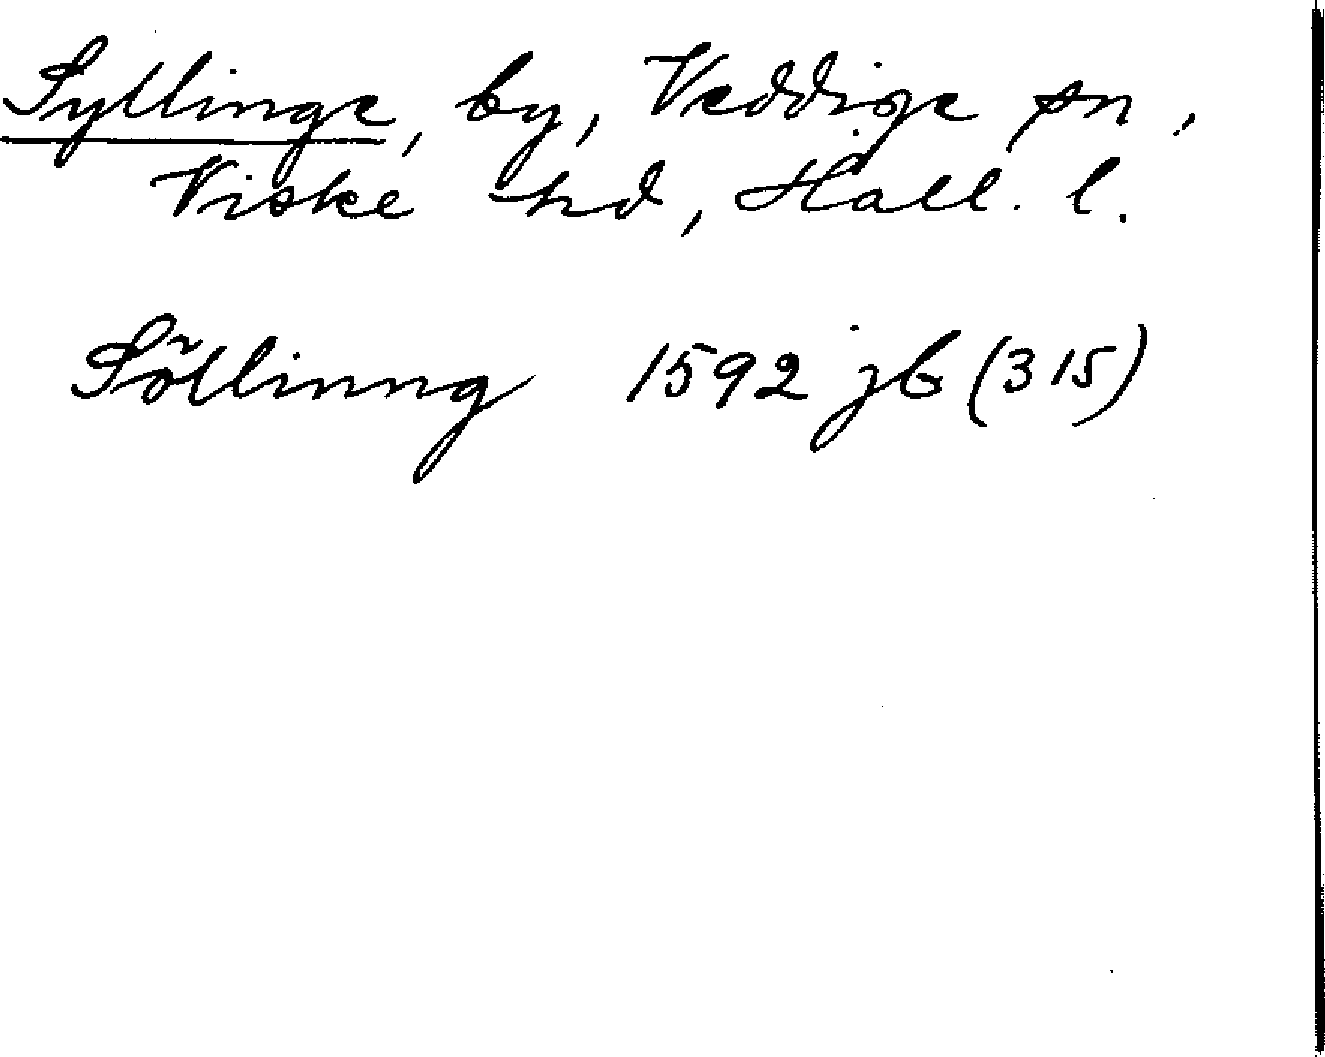 Syllinge, by, Veddige sn,
Viske hd, Hall. l.
Söllinng 1592 jb (315)